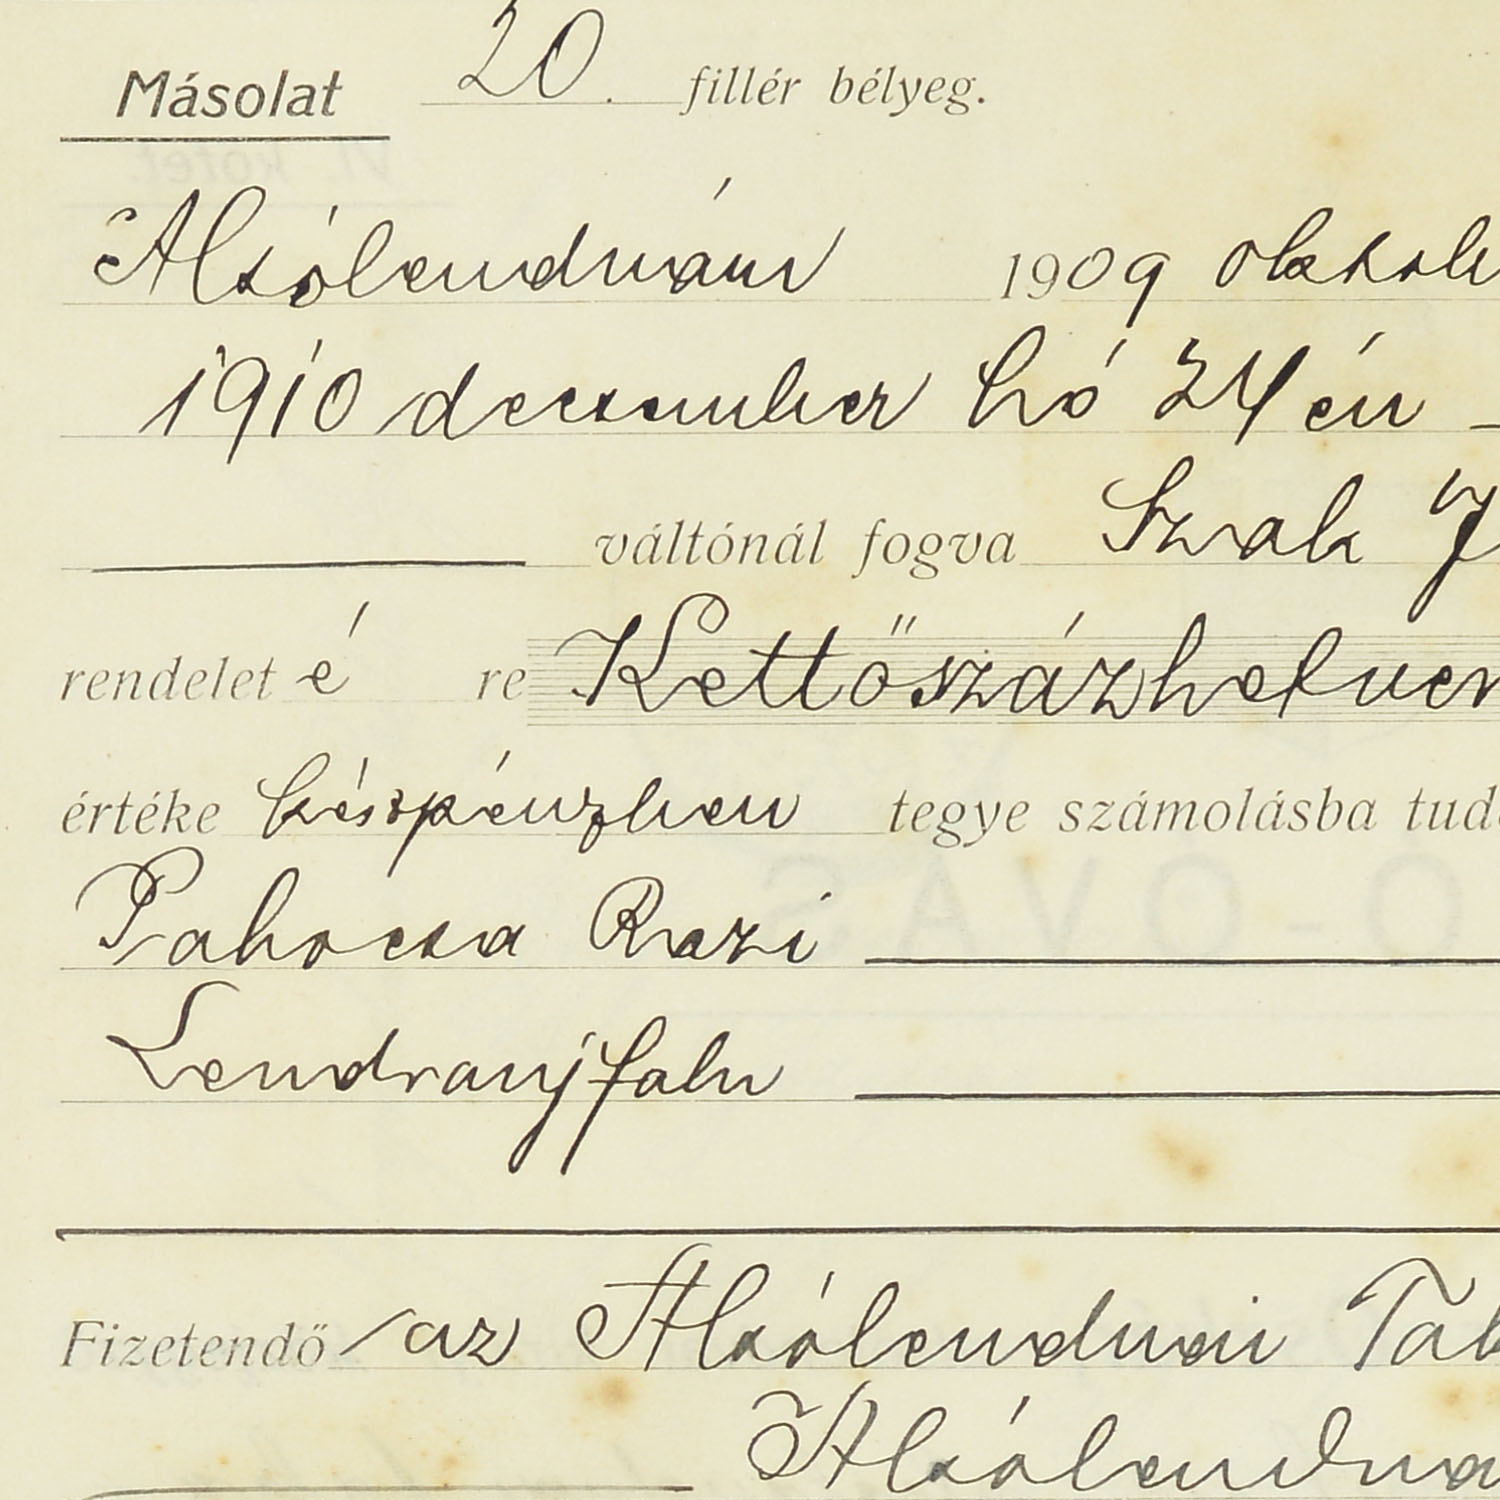 Másolat 20. fillér bélyeg.
Alsólendván 1909 oktob
1910 december hó 24 én
váltónál fogva Szak J
rendelet é re Kettőszázhetven
értéke készpénzben tegye számolásba tud
Pahocsa Rozi
Lendvaujfalu
Fizetendő az Alsólendvai Tak
Alsólendva